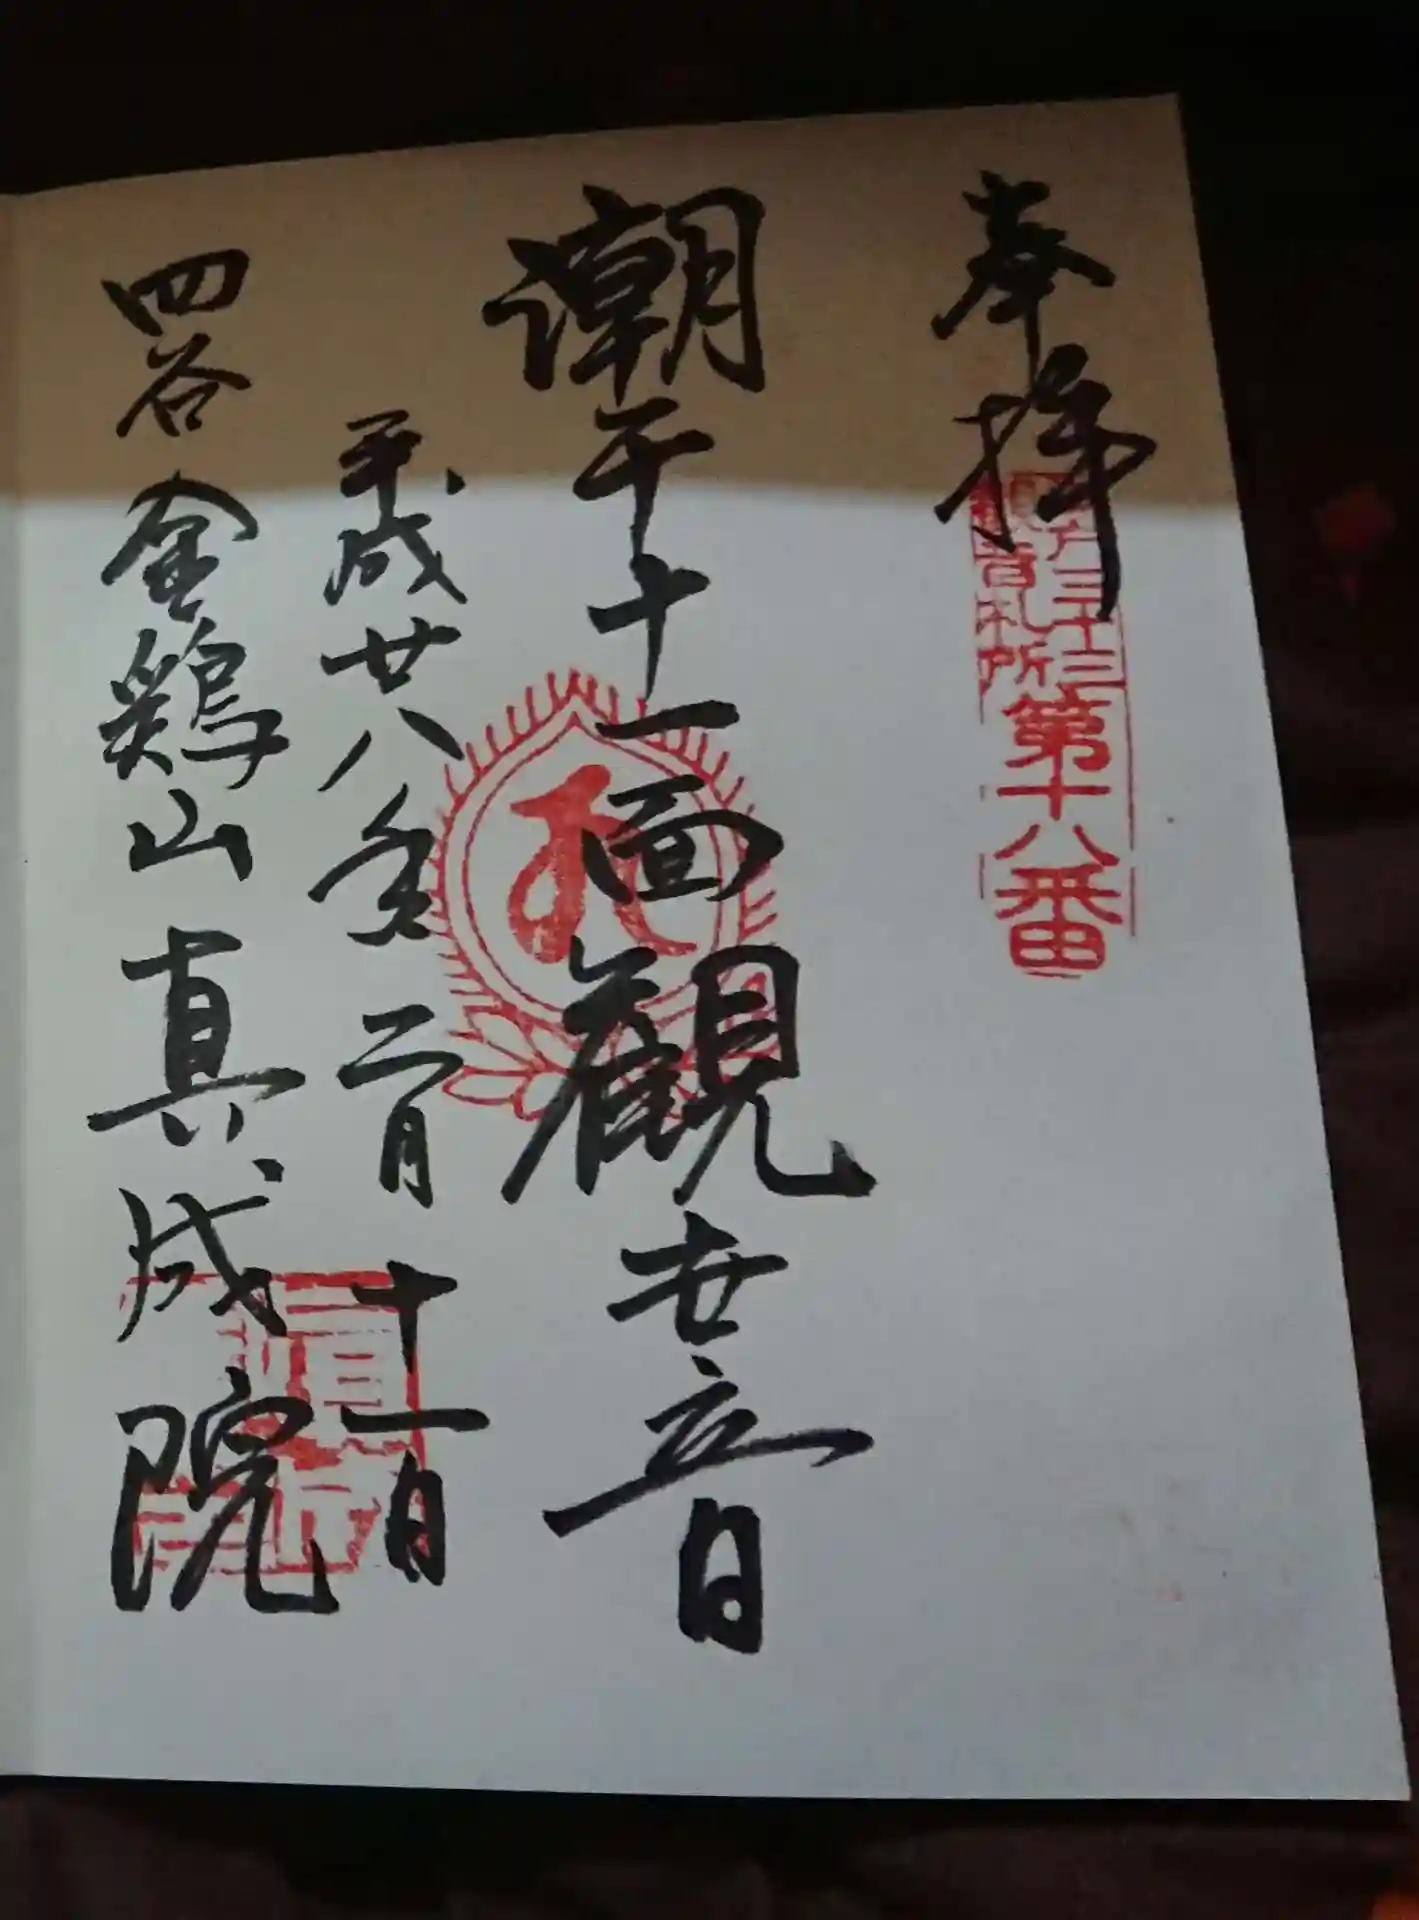 奉拝
江戸三十三
観音札所
第十八番
潮干十一面観世音
平成廿八年二月十一日
四谷金鶏山真成院